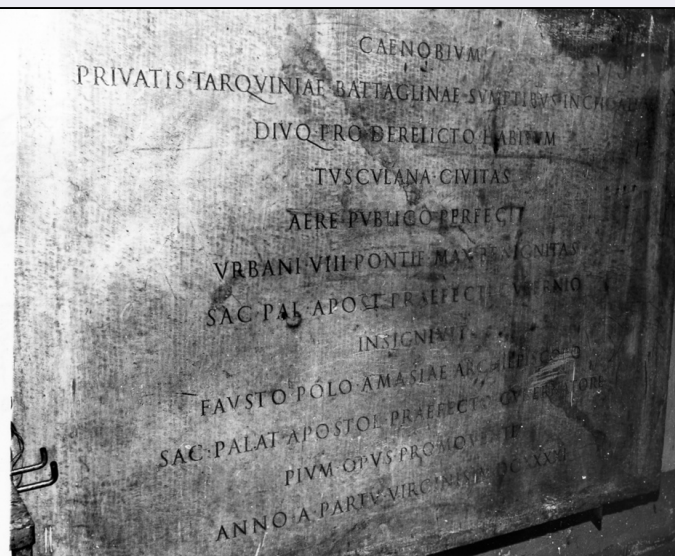 CAENOBIVM
PRIVATIS·TARQVINIAE·BATTAGLINAE·SVMPTIBVS·INCHOATVM
DIVQ·PRO·DERELICTO HABITVM
TVSCVLANA·CIVITAS
AERE·PVBLICO·PERFECIT
VRBANI·VIII·PONTIF·MAX·BENIGNITAS
SAC·PAL·APOST·PRAEFECTI
INSIGNIVIT
FAVSTO POLO AMASIAE ARCHIEPISCOPO
SAC·PALAT·APOSTOL·PRAEFECTO GVBERNATORE
PIVM OPVS PROMOVENTE
ANNO A PARTV VIRGINIS